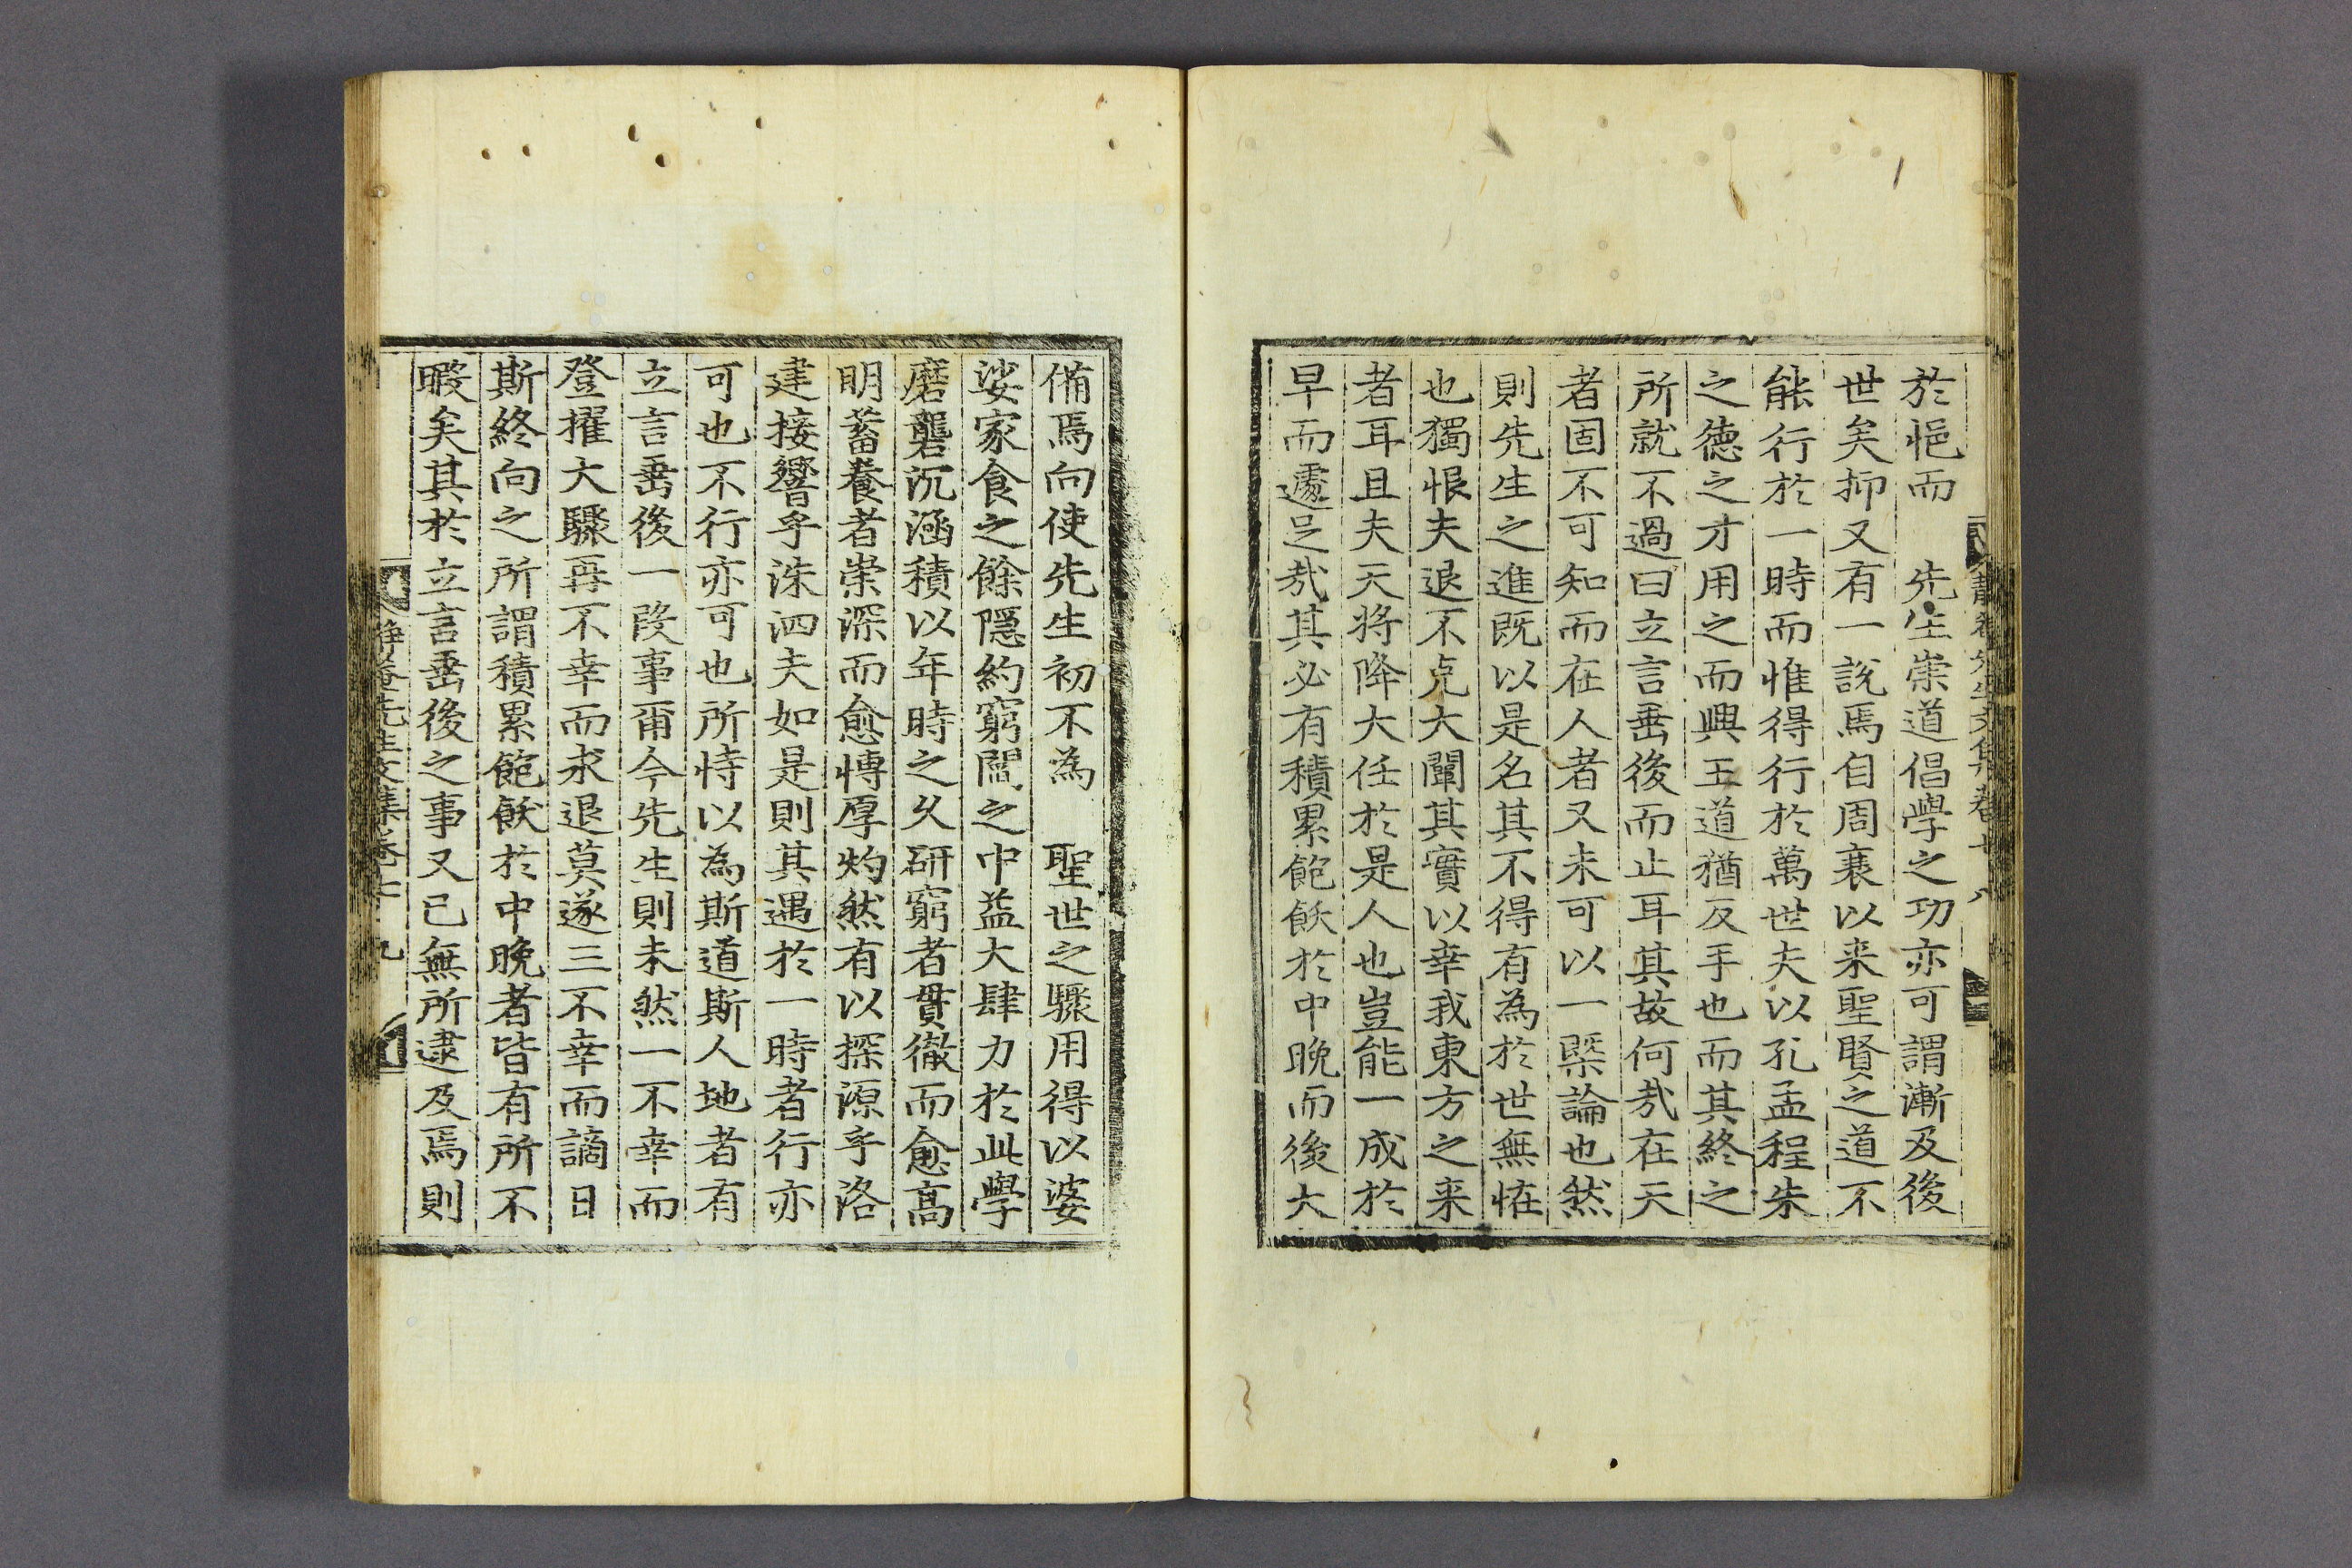 靜菴先生文集卷七 八
於悒而 先生崇道倡學之功亦可謂漸及後
世矣抑又有一說焉自周衰以来聖賢之道不
能行於一時而惟得行於萬世夫以孔孟程朱
之德之才用之而興王道猶反手也而其終之
所就不過曰立言垂後而止耳其故何㢤在天
者固不可知而在人者又未可以一槩論也然
則先生之進既以是名其不得有為於世無恠
也獨恨夫退不克大闡其實以幸我東方之来
者耳且夫天将降大任於是人也豈能一成於
早而遽足㢤其必有積累飽飫於中晩而後大
備焉向使先生初不為 聖世之驟用得以婆
娑家食之餘隱約窮閻之中益大肆力於此學
磨礱沉涵積以年時之久研窮者貫徹而愈高
明蓄養者崇深而愈博厚灼然有以探源乎洛
建接響乎洙泗夫如是則其遇於一時者行亦
可也不行亦可也所恃以為斯道斯人地者有
立言垂後一段事爾今先生則未然一不幸而
登擢大驟再不幸而求退莫遂三不幸而謫日
斯終向之所謂積累飽飫於中晩者皆有所不
暇矣其於立言垂後之事又已無所逮及焉則
靜菴先生文集卷七 九